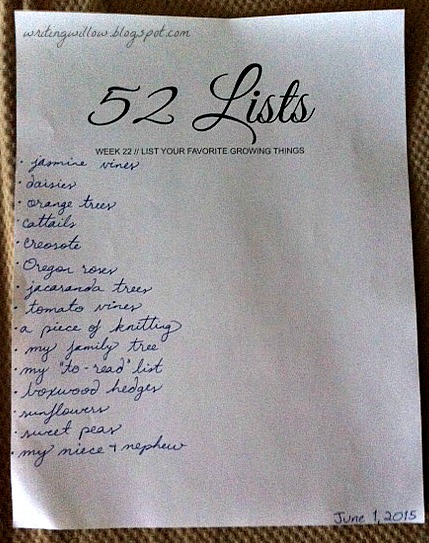 writingwillow.blogspot.com
52 Lists
WEEK 22 // LIST YOUR FAVORITE GROWING THINGS
· jasmine vines
· daisies
· orange trees
· cattails
· creosote
· Oregon roses
· jacaranda trees
· tomato vines
· a piece of knitting
· my family tree
· my "to-read" list
· boxwood hedges
· sunflowers
· sweet peas
· my niece + nephew
June 1, 2015